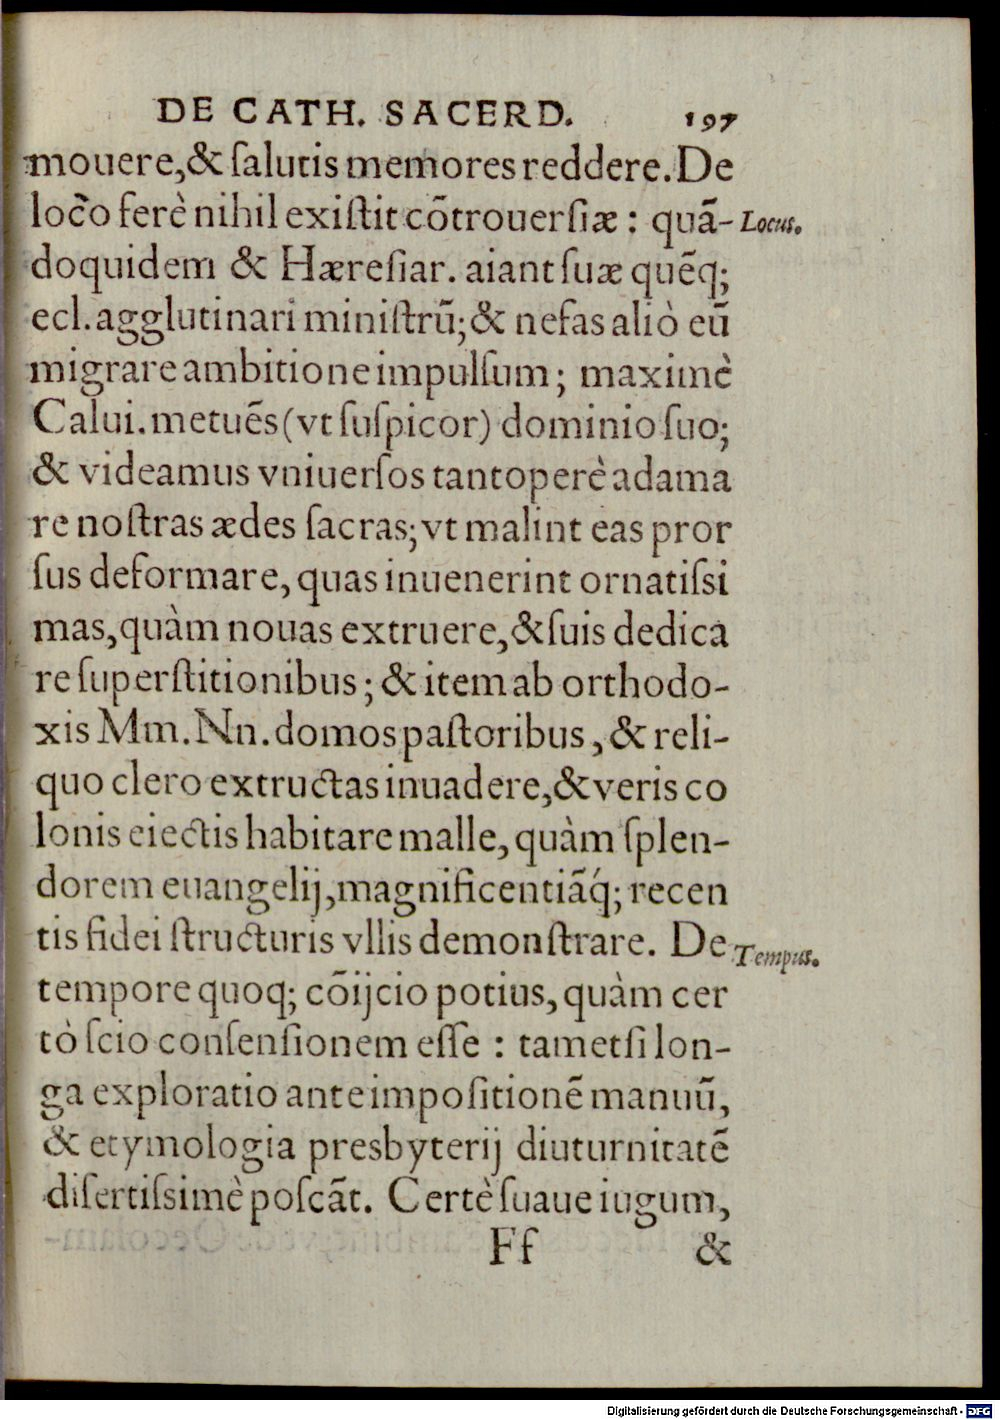 DE CATH. SACERD. 197
mouere,& ſalutis memores reddere. De
loco ferè nihil exiſtit cõtrouerſiæ : quã- Locus.
doquidem & Hæreſiar. aiant ſuæ quẽq;
ecl. agglutinari miniſtrũ; & nefas aliò eũ
migrare ambitione impulſum; maximè
Calui. metuẽs (vt ſuſpicor) dominio ſuo;
& videamus vniuerſos tantoperè adama
re noſtras ædes ſacras; vt malint eas pror
ſus deformare, quas inuenerint ornatiſsi
mas, quàm nouas extruere, & ſuis dedica
re ſuperſtitionibus; & item ab orthodo-
xis Mm. Nn. domos paſtoribus, & reli-
quo clero extructas inuadere, & veris co
lonis eiectis habitare malle, quàm ſplen-
dorem euangelij, magnificentiãq́; recen
tis fidei ſtructuris vllis demonſtrare. De Tempus.
tempore quoq; cõijcio potius, quàm cer
tò ſcio conſenſionem eſſe : tametſi lon-
ga exploratio ante impoſitionẽ manuũ,
& etymologia presbyterij diuturnitatẽ
diſertiſsimè poſcãt. Certè ſuaue iugum,
Ff &
Digitalisierung gefördert durch die Deutsche Forschungsgemeinschaft - DFG